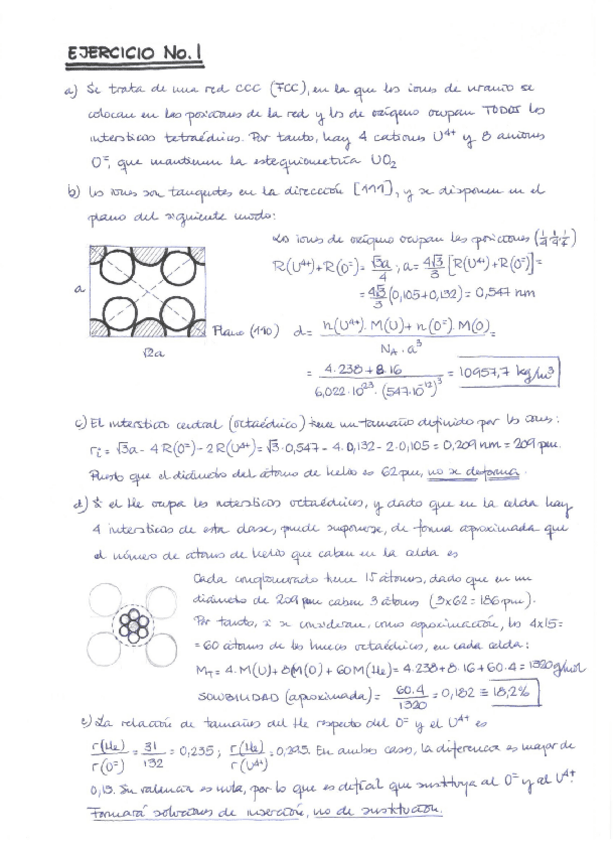 EJERCICIO No. 1
a) Se trata de una red CCC (FCC), en la que los iones de uranio se
colocan en las posiciones de la red y los de oxígeno ocupan TODOS los
intersticios tetraédricos. Por tanto, hay 4 cationes U⁴⁺ y 8 aniones
O⁼, que mantienen la estequiometría UO₂
b) Los iones son tangentes en la dirección [111], y se disponen en el
plano del siguiente modo:
Los iones de oxígeno ocupan las posiciones (1/4 1/4 1/4)
R(U⁴⁺)+R(O⁼) = √3a/4 ; a = 4√3/3 [R(U⁴⁺)+R(O⁼)] =
= 4√3/3 (0,105+0,132) = 0,547 nm
a
√2a
Plano (110)
d = n(U⁴⁺)·M(U)+n(O⁼)·M(O) / N_A·a³ =
= 4·238+8·16 / 6,022·10²³·(547·10⁻¹²)³ = 10957,7 kg/m³
c) El intersticio central (octaédrico) tiene un tamaño definido por los iones:
ri = √3a - 4R(O⁼) - 2R(U⁴⁺) = √3·0,547 - 4·0,132 - 2·0,105 = 0,209 nm = 209 pm.
Puesto que el diámetro del átomo de helio es 62 pm, no se deforma.
d) Si el He ocupa los intersticios octaédricos, y dado que en la celda hay
4 intersticios de esta clase, puede suponerse, de forma aproximada que
el número de átomos de helio que caben en la celda es
Cada conglomerado tiene 15 átomos, dado que en un
diámetro de 209 pm caben 3 átomos (3x62 = 186 pm).
Por tanto, si se consideran, como aproximación, los 4x15 =
= 60 átomos de los huecos octaédricos, en cada celda:
M_T = 4·M(U)+8M(O)+60M(He) = 4·238+8·16+60·4 = 1320 g/mol
SOLUBILIDAD (aproximada) = 60·4/1320 = 0,182 ≅ 18,2%
e) La relación de tamaños del He respecto del O⁼ y el U⁴⁺ es
r(He)/r(O⁼) = 31/132 = 0,235 ; r(He)/r(U⁴⁺) = 0,295. En ambos casos, la diferencia es mayor de
0,15. Su valencia es nula, por lo que es difícil que sustituya al O⁼ y al U⁴⁺
Formará soluciones de inserción, no de sustitución.